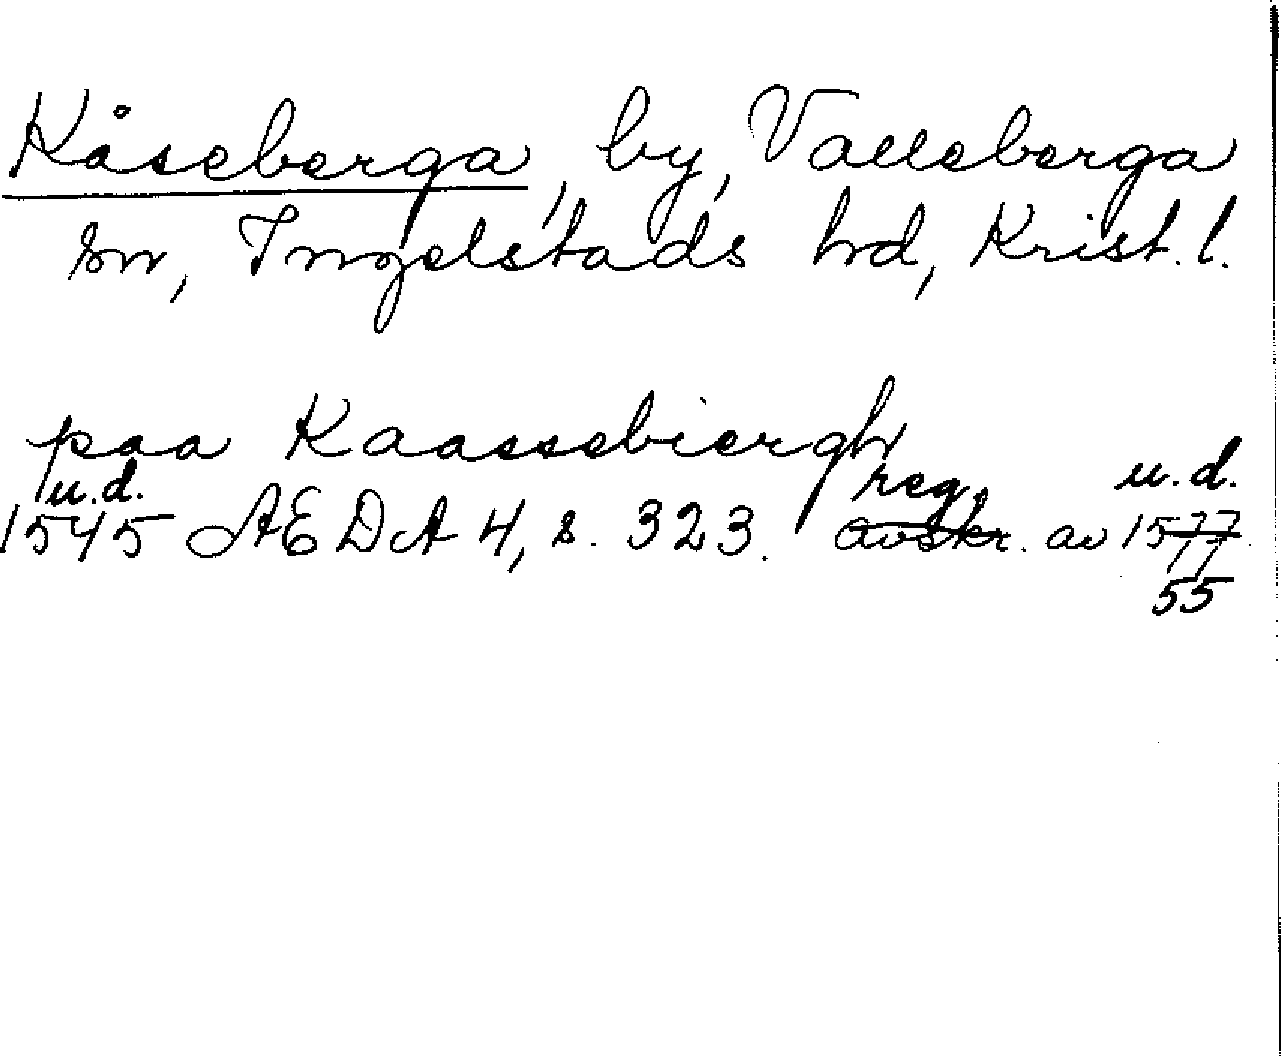 Kåseberga, by, Valleberga
sn, Ingelstads hd, Krist. l.
paa Kaassebiergh
u.d. reg. u.d.
1545 AEDA 4, s. 323. avskr. av 1577.
55